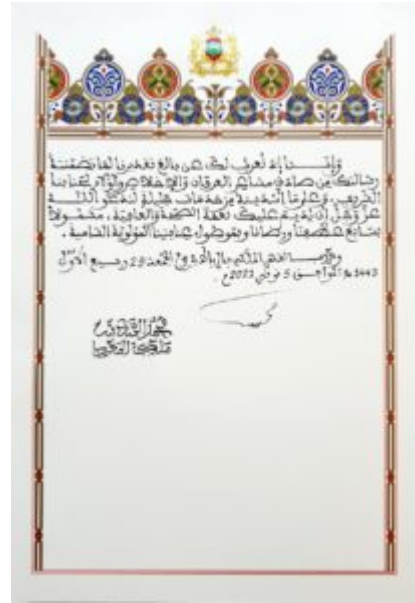 وإننا إذ نعرب لك، عن بالغ تقديرنا لما تضمنته
رسالتك من صادق مشاعر العرفان والإخلاص والولاء لجنابنا
الشريف، وعلى ما أسديته من خدمات جليلة لندعو الله
عز وجل أن يديم عليك نعمة الصحة والعافية، مشمولا
بسابغ عطفنا ورضانا وبموصول عنايتنا المولوية السامية.
وحرر بالقصر الملكي بالرباط في الجمعة 29 ربيع الأول
1443 هـ الموافق 5 نونبر 2021 م.
محمد السادس
ملك المغرب